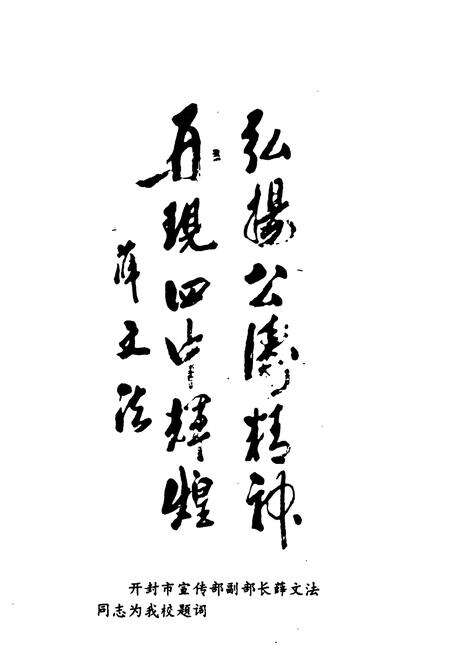 弘揚公精神
再現四中輝煌
薛文法
开封市宣传部副部长薛文法
同志为我校题词